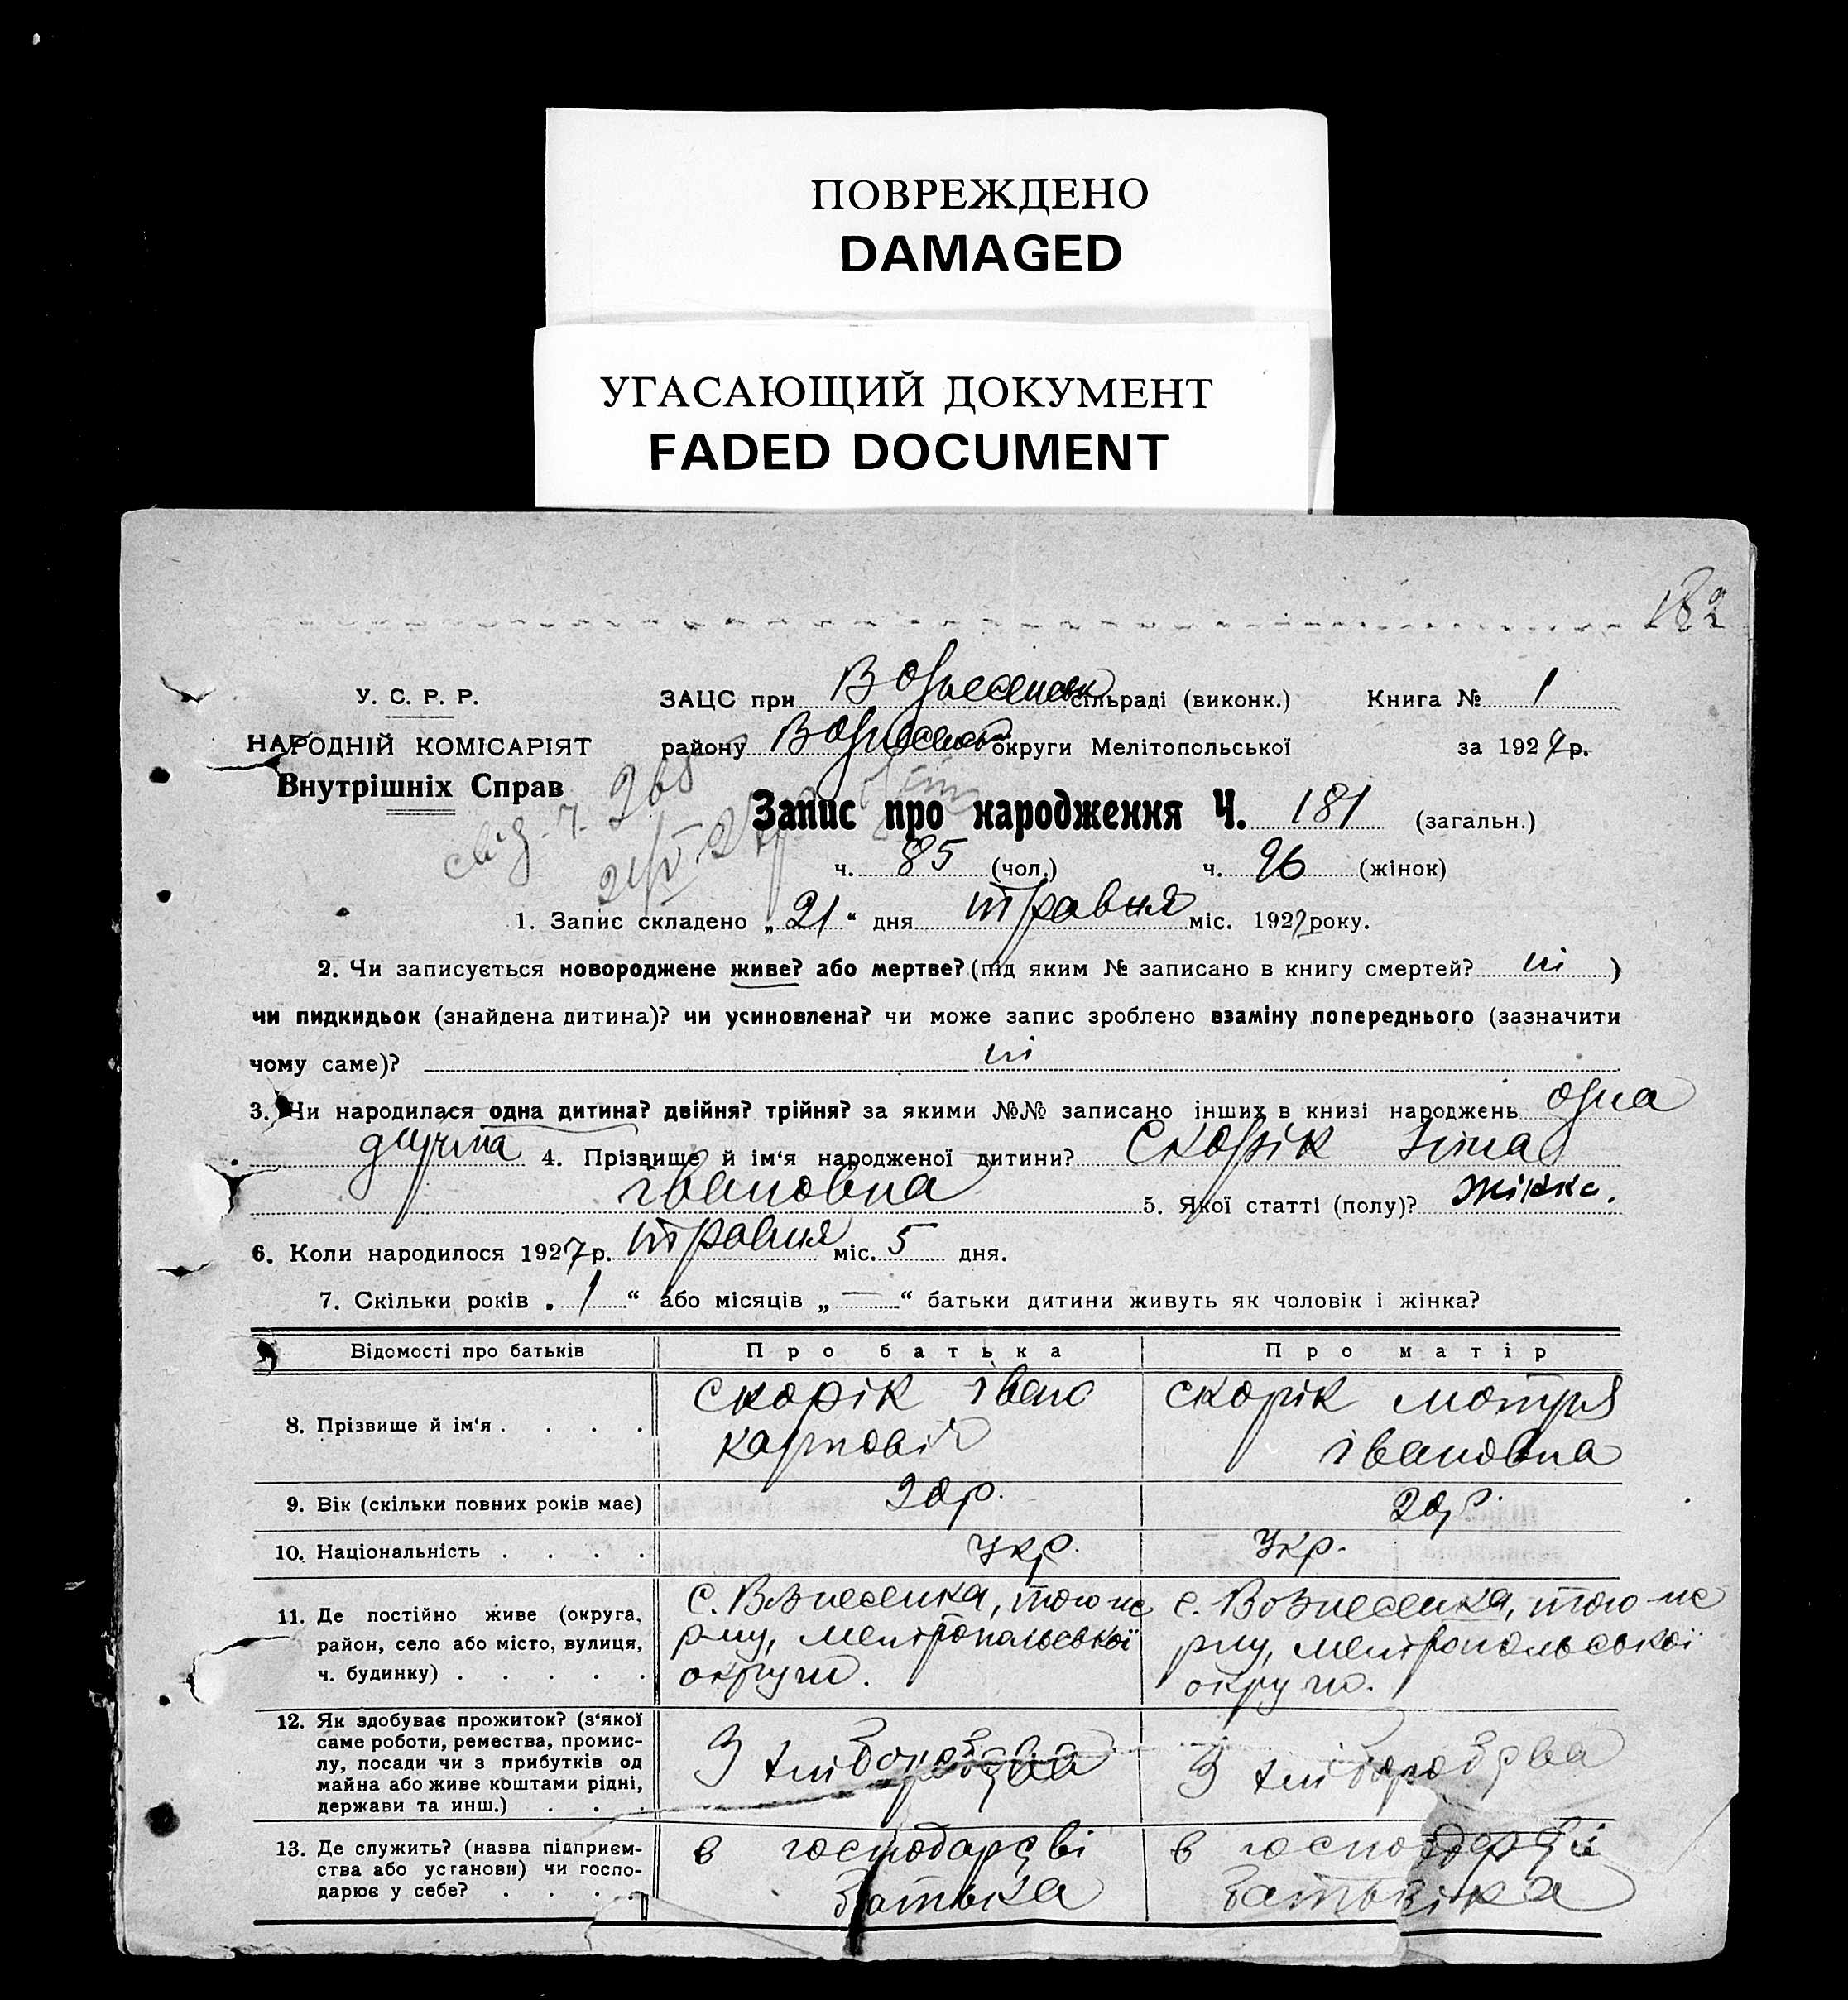 ПОВРЕЖДЕНО
DAMAGED
УГАСАЮЩИЙ ДОКУМЕНТ
FADED DOCUMENT
182
У. С. Р. Р.
НАРОДНІЙ КОМІСАРІЯТ
Внутрішніх Справ
ЗАЦС при Вознесенськ сільраді (виконк.) Книга № 1
району Вознесенськ округи Мелітопольської за 1927 р.
свід. ч. 268
21/V 27р
Запис про народження Ч. 181 (загальн.)
ч. 85 (чол.) ч. 96 (жінок)
1. Запис складено „21“ дня травня міс. 1927 року.
2. Чи записується новороджене живе? або мертве? (під яким № записано в книгу смертей? ні )
чи пидкидьок (знайдена дитина)? чи усиновлена? чи може запис зроблено взаміну попереднього (зазначити
чому саме)? ні
3. Чи народилася одна дитина? двійня? трійня? за якими №№ записано інших в книзі народжень одна
дитина 4. Прізвище й ім'я народженої дитини? Скорік Ніна
івановна 5. Якої статті (полу)? жінка.
6. Коли народилося 1927 р. травня міс. 5 дня.
7. Скільки років „1“ або місяців „—“ батьки дитини живуть як чоловік і жінка?
Відомості про батьків Про батька Про матір
8. Прізвище й ім'я . . . . . скорік івано карповіч скорік мотря івановна
9. Вік (скільки повних років має) 20р. 20р.
10. Національність . . . . Укр. Укр.
11. Де постійно живе (округа, район, село або місто, вулиця, ч. будинку) . . . . . с. Вознесенка, того-же р-ну, мелітопольської округи. с. Вознесенка, того-же р-ну, мелітопольської округи.
12. Як здобуває прожиток? (з'якої саме роботи, ремества, промислу, посади чи з прибутків од майна або живе коштами рідні, держави та инш.) . . . З хліборобства З хліборобства
13. Де служить? (назва підприємства або установи) чи господарює у себе? . . . . в господарстві батька в господарстві батька